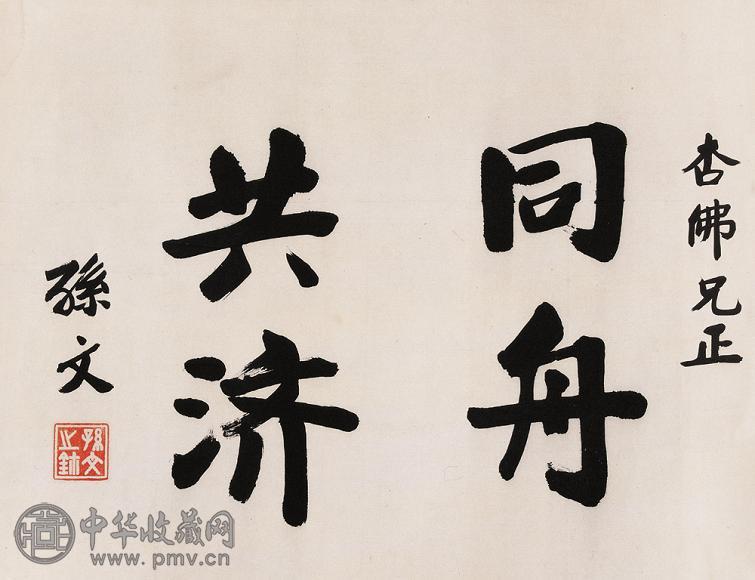 杏佛兄正
同舟
共济
孫文
孙文之鉢
中华收藏网
www.pmv.cn